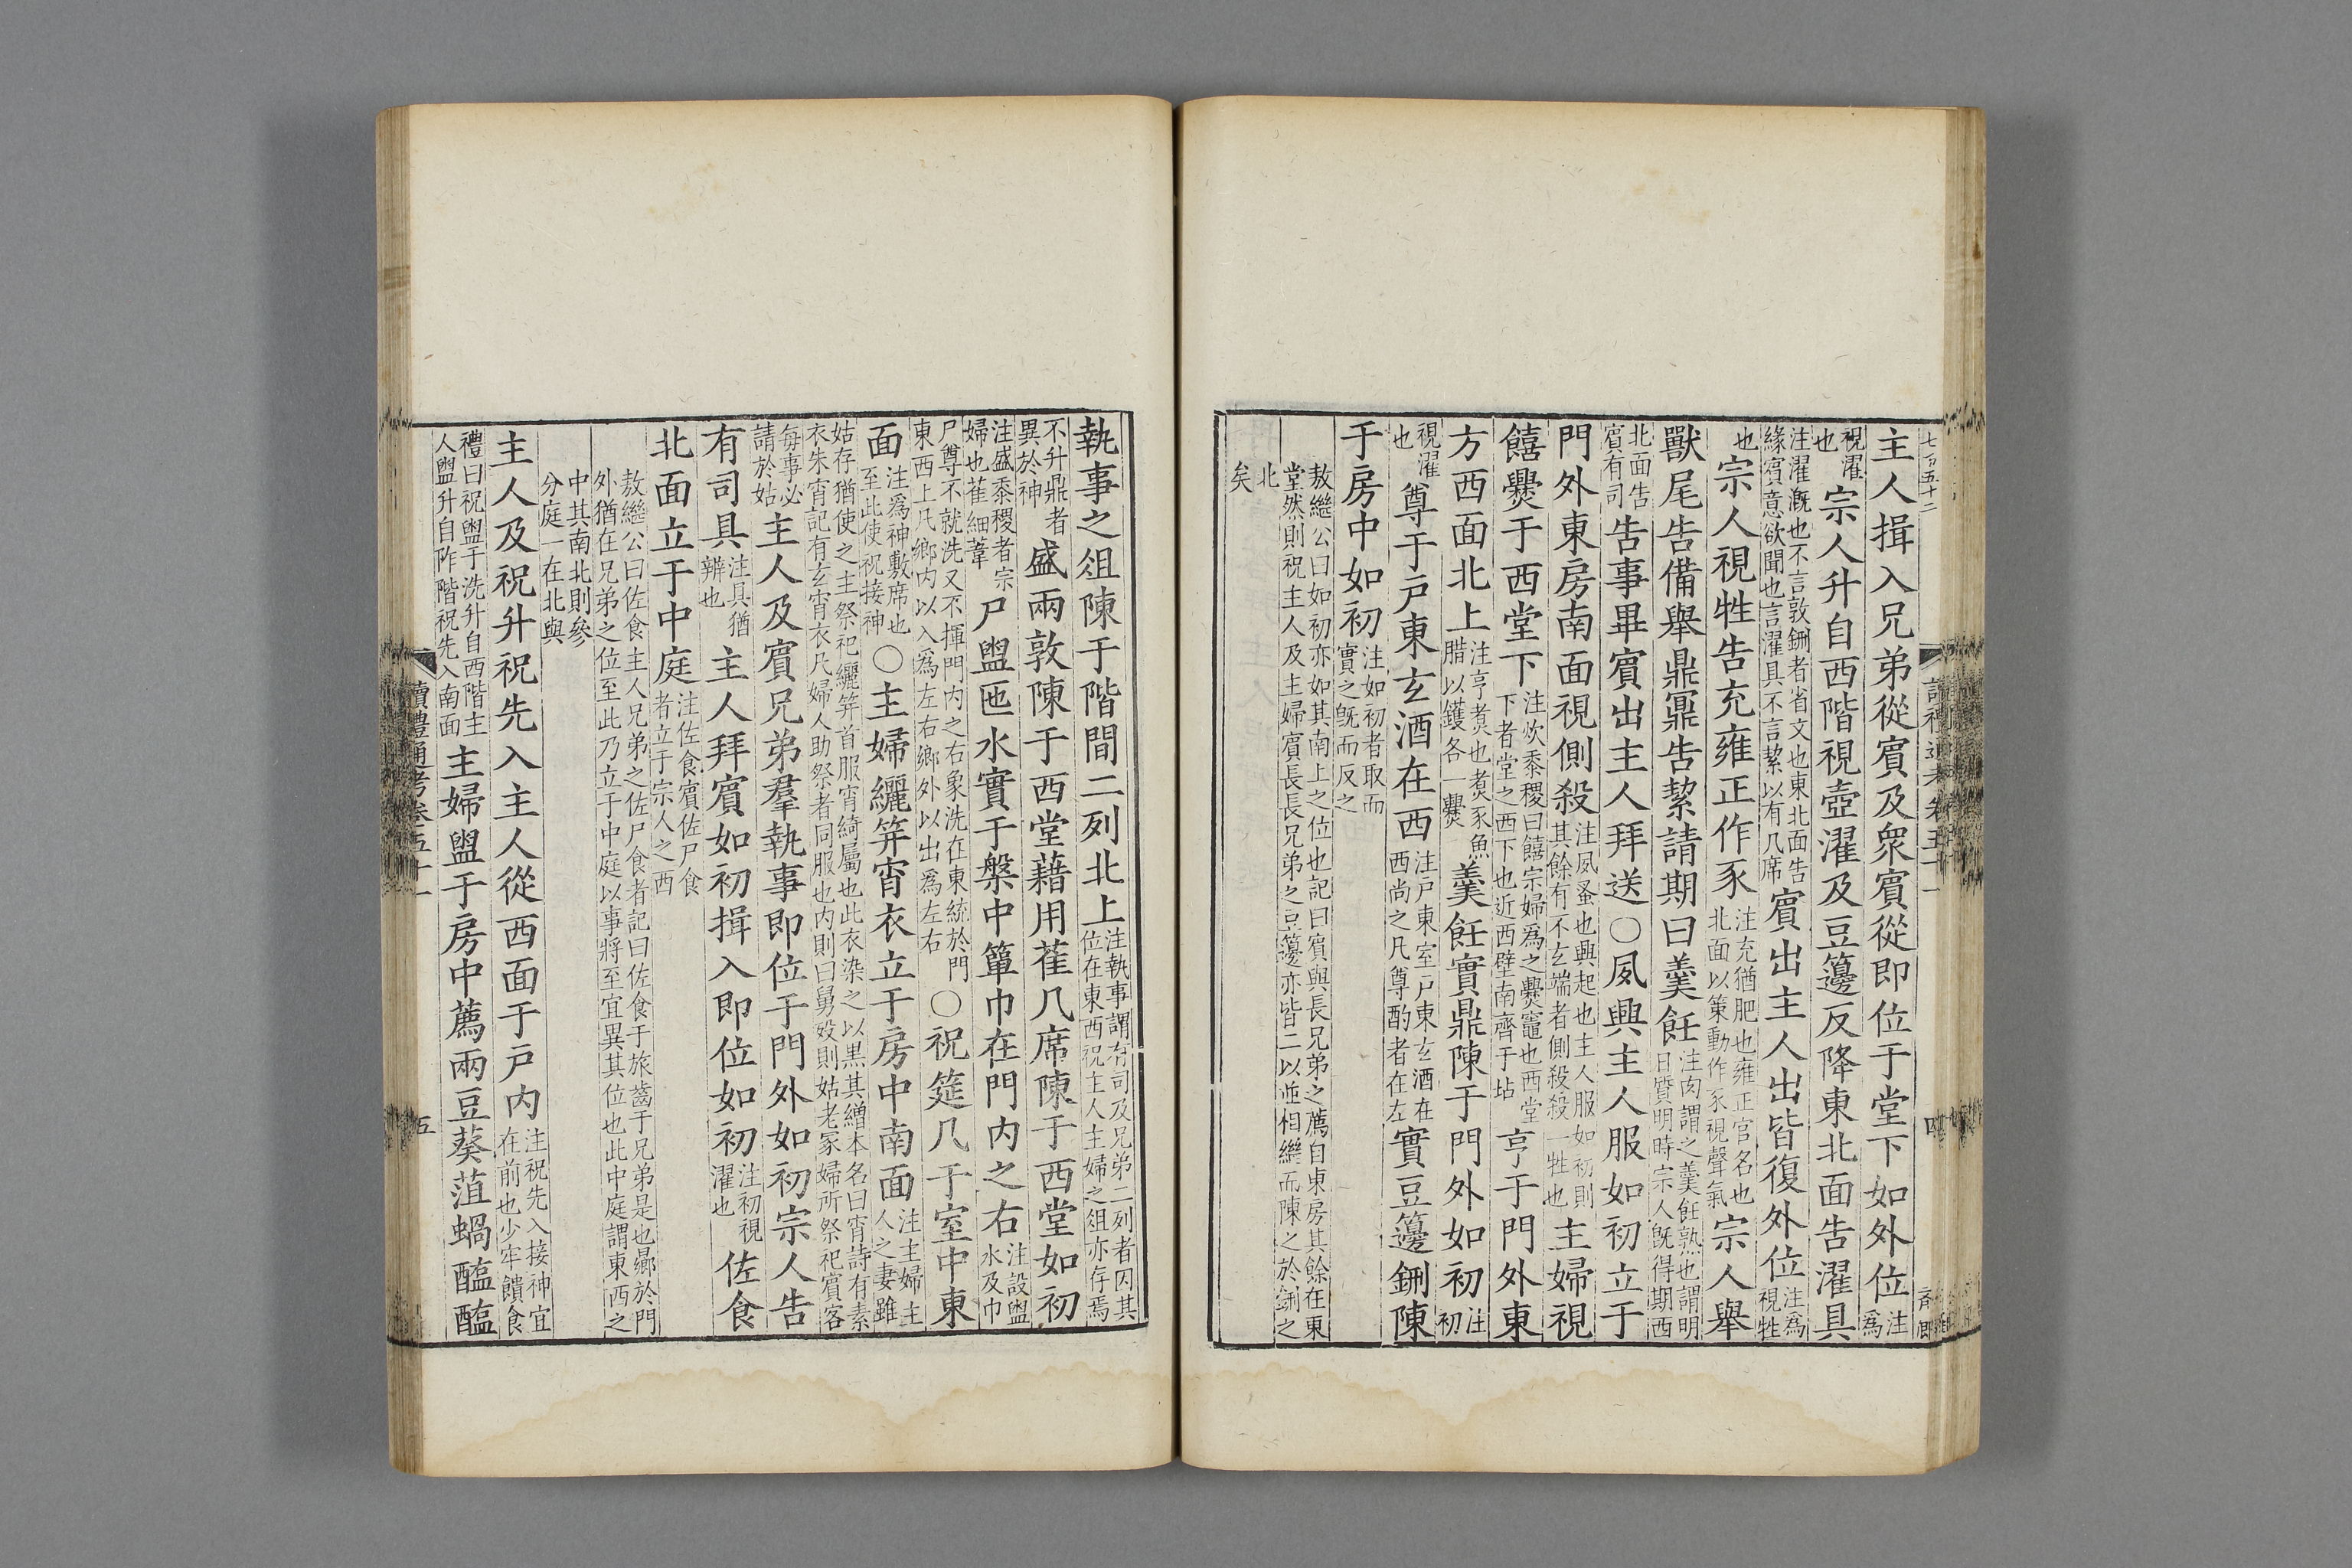 七百五十二
主人揖入兄弟從賓及衆賓從即位于堂下如外位注爲
視濯也宗人升自西階視壺濯及豆籩反降東北面告濯具
注濯漑也不言敦鉶者省文也東北面告緣賓意欲聞也言濯具不言絜以有几席賓出主人出皆復外位注爲視牲
也宗人視牲告充雍正作豕注充猶肥也雍正官名也北面以策動作豕視聲氣宗人舉
獸尾告備舉鼎鼏告絜請期曰羹飪注肉謂之羹飪熟也謂明日質明時宗人旣得期西
北面告賓有司告事畢賓出主人拜送〇夙興主人服如初立于
門外東房南面視側殺注夙蚤也興起也主人服如初則其餘有不玄端者側殺殺一牲也主婦視
饎爨于西堂下注炊黍稷曰饎宗婦爲之爨竈也西堂下者堂之西下也近西壁南齊于坫亨于門外東
方西面北上注亨煮也煮豕魚腊以鑊各一爨羹飪實鼎陳于門外如初注初
視濯也尊于戶東玄酒在西注戶東室戶東玄酒在西尚之凡尊酌者在左實豆籩鉶陳
于房中如初注如初者取而實之旣而反之
敖繼公曰如初亦如其南上之位也記曰賓與長兄弟之薦自東房其餘在東堂然則祝主人及主婦賓長長兄弟之豆籩亦皆二以竝相繼而陳之於鉶之
北矣
執事之俎陳于階間二列北上注執事謂有司及兄弟二列者因其位在東西祝主人主婦之俎亦存焉
不升鼎者異於神盛兩敦陳于西堂藉用萑几席陳于西堂如初
注盛黍稷者宗婦也萑細葦尸盥匜水實于槃中簞巾在門内之右注設盥水及巾
尸尊不就洗又不揮門内之右象洗在東統於門東西上凡鄉内以入爲左右鄉外以出爲左右〇祝筵几于室中東
面注爲神敷席也至此使祝接神〇主婦纚笄宵衣立于房中南面注主婦主人之妻雖
姑存猶使之主祭祀纚笄首服宵綺屬也此衣染之以黑其繒本名曰宵詩有素衣朱宵記有玄宵衣凡婦人助祭者同服也内則曰舅歿則姑老冢婦所祭祀賓客
每事必請於姑主人及賓兄弟羣執事即位于門外如初宗人告
有司具注具猶辦也主人拜賓如初揖入即位如初注初視濯也佐食
北面立于中庭注佐食賓佐尸食者立于宗人之西
敖繼公曰佐食主人兄弟之佐尸食者記曰佐食于旅齒于兄弟是也曏於門外猶在兄弟之位至此乃立于中庭以事將至宜異其位也此中庭謂東西之
中其南北則參分庭一在北與
主人及祝升祝先入主人從西面于戶内注祝先入接神宜在前也少牢饋食
禮曰祝盥于洗升自西階主人盥升自阼階祝先入南面主婦盥于房中薦兩豆葵菹蝸醢醢
讀禮通考卷五十一
五